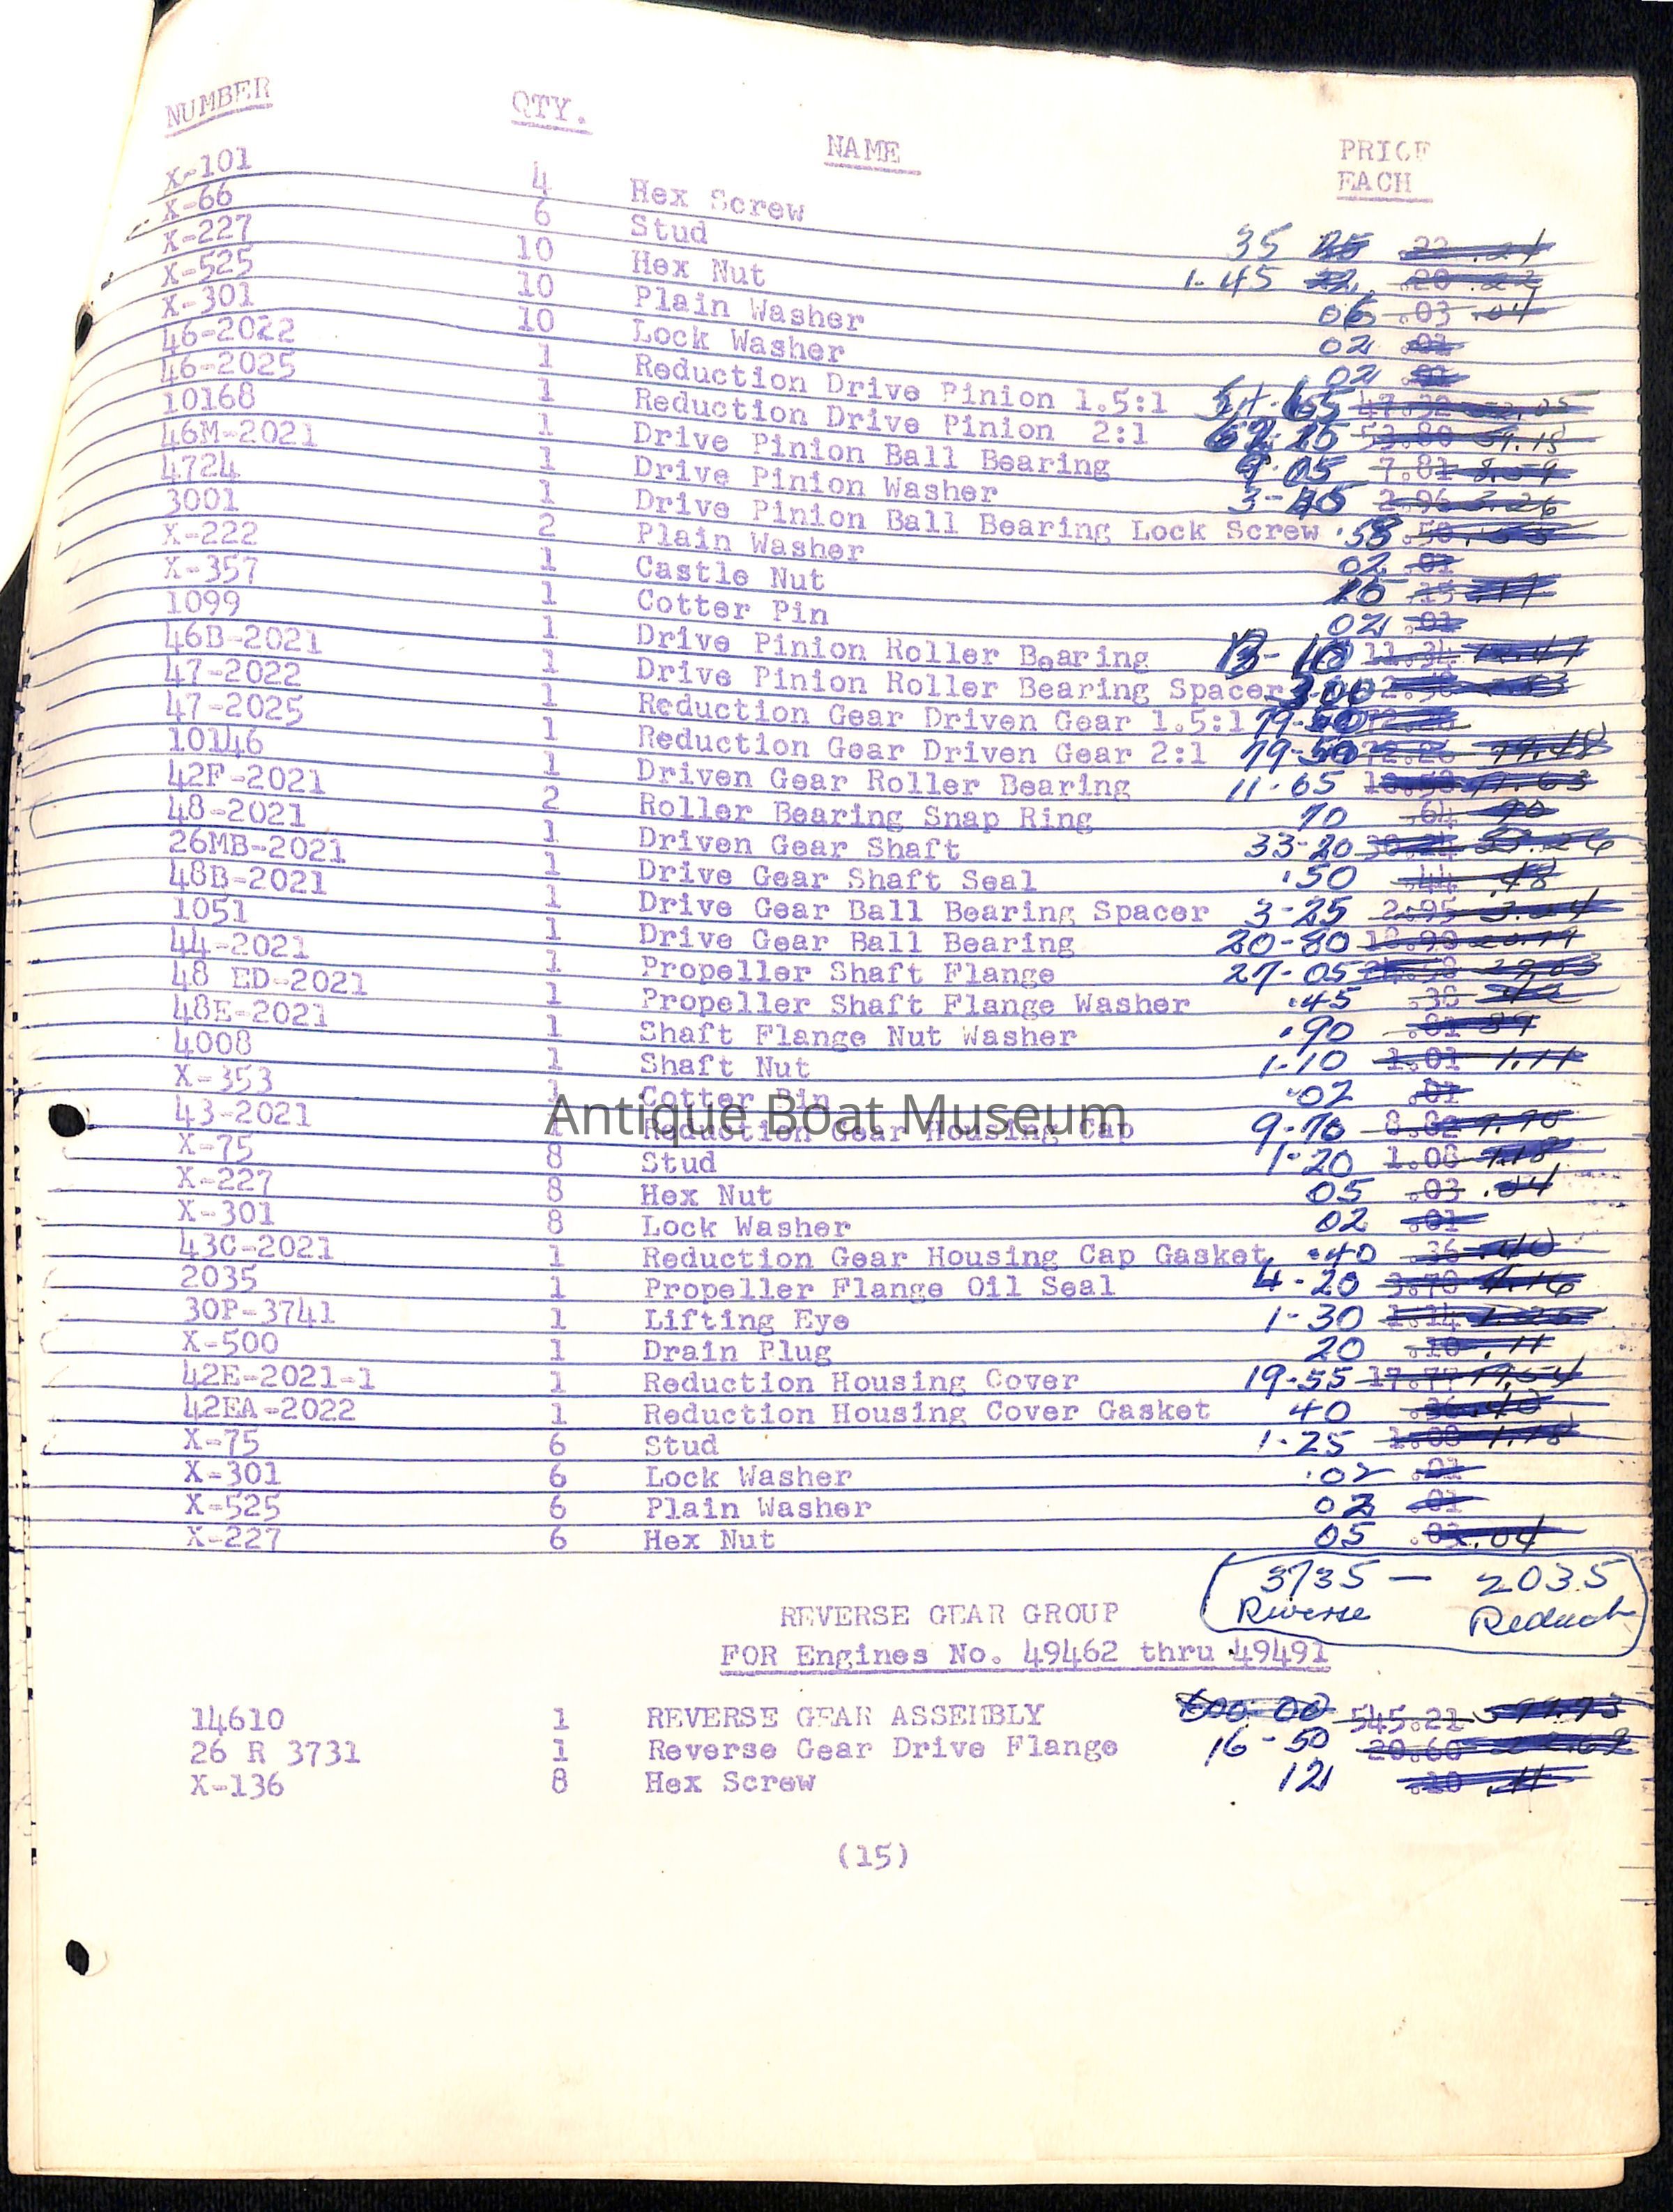 NUMBER QTY. NAME PRICE EACH
X-101 4 Hex Screw 35
X-66 6 Stud 1-45
X-227 10 Hex Nut 06 .03 .04
X-525 10 Plain Washer 02 .01
X-301 10 Lock Washer 02 .01
46-2022 1 Reduction Drive Pinion 1.5:1 47.32
46-2025 1 Reduction Drive Pinion 2:1 53.80 59.18
10168 1 Drive Pinion Ball Bearing 9-05 7.81 8.59
46M-2021 1 Drive Pinion Washer 2.96 3.26
4724 1 Drive Pinion Ball Bearing Lock Screw .58 .50
3001 2 Plain Washer 02 .01
X-222 1 Castle Nut .15
X-357 1 Cotter Pin 02 .01
1099 1 Drive Pinion Roller Bearing 11.34 12.47
46B-2021 1 Drive Pinion Roller Bearing Spacer 3-00
47-2022 1 Reduction Gear Driven Gear 1.5:1
47-2025 1 Reduction Gear Driven Gear 2:1 79-50 72.26 79.48
10146 1 Driven Gear Roller Bearing 11-65 11.63
42F-2021 2 Roller Bearing Snap Ring 70 .64 70
48-2021 1 Driven Gear Shaft 33-20 30.24 33.26
26MB-2021 1 Drive Gear Shaft Seal .50 .44 .48
48B-2021 1 Drive Gear Ball Bearing Spacer 3-25 2.95
1051 1 Drive Gear Ball Bearing 20-80 18.90 20.79
44-2021 1 Propeller Shaft Flange 27-05
48 ED-2021 1 Propeller Shaft Flange Washer .45 .38
48E-2021 1 Shaft Flange Nut Washer .90 .81 89
4008 1 Shaft Nut 1-10 1.01 1.11
X-353 1 Cotter Pin .02 .01
Antique Boat Museum
43-2021 1 Reduction Gear Housing Cap 9-70 8.82 9.70
X-75 8 Stud 1-20 1.08 1.18
X-227 8 Hex Nut 05 .03 .04
X-301 8 Lock Washer 02 .01
43C-2021 1 Reduction Gear Housing Cap Gasket .40 .36 .40
2035 1 Propeller Flange Oil Seal 4-20 3.78 4.16
30P-3741 1 Lifting Eye 1-30 1.14 1.25
X-500 1 Drain Plug 20 .10 .11
42E-2021-1 1 Reduction Housing Cover 19-55 17.77 19.54
42EA-2022 1 Reduction Housing Cover Gasket 40 .36 .40
X-75 6 Stud 1-25 1.08 1.18
X-301 6 Lock Washer .02 .01
X-525 6 Plain Washer 02 .01
X-227 6 Hex Nut 05 .03 .04
3735 — 2035
Reverse Reduct
REVERSE GEAR GROUP
FOR Engines No. 49462 thru 49491
14610 1 REVERSE GEAR ASSEMBLY 600-00 545.21 599.73
26 R 3731 1 Reverse Gear Drive Flange 16-50 20.60
X-136 8 Hex Screw 12 .10 .11
(15)